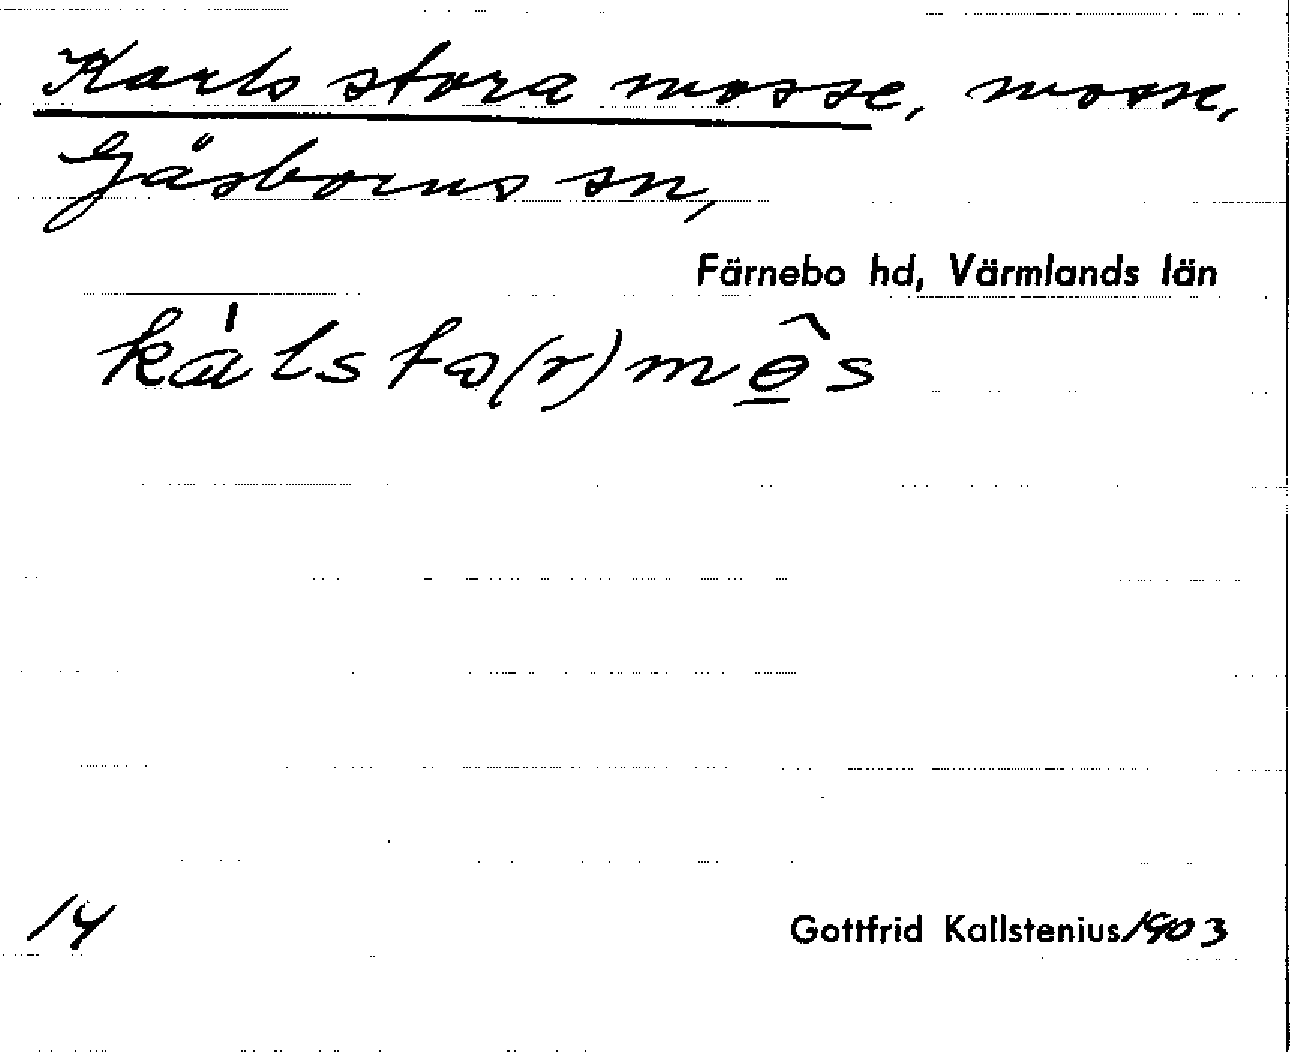 Karls stora mosse, mosse,
Gåsborns sn,
Färnebo hd, Värmlands län
14
Gottfrid Kallstenius 1903